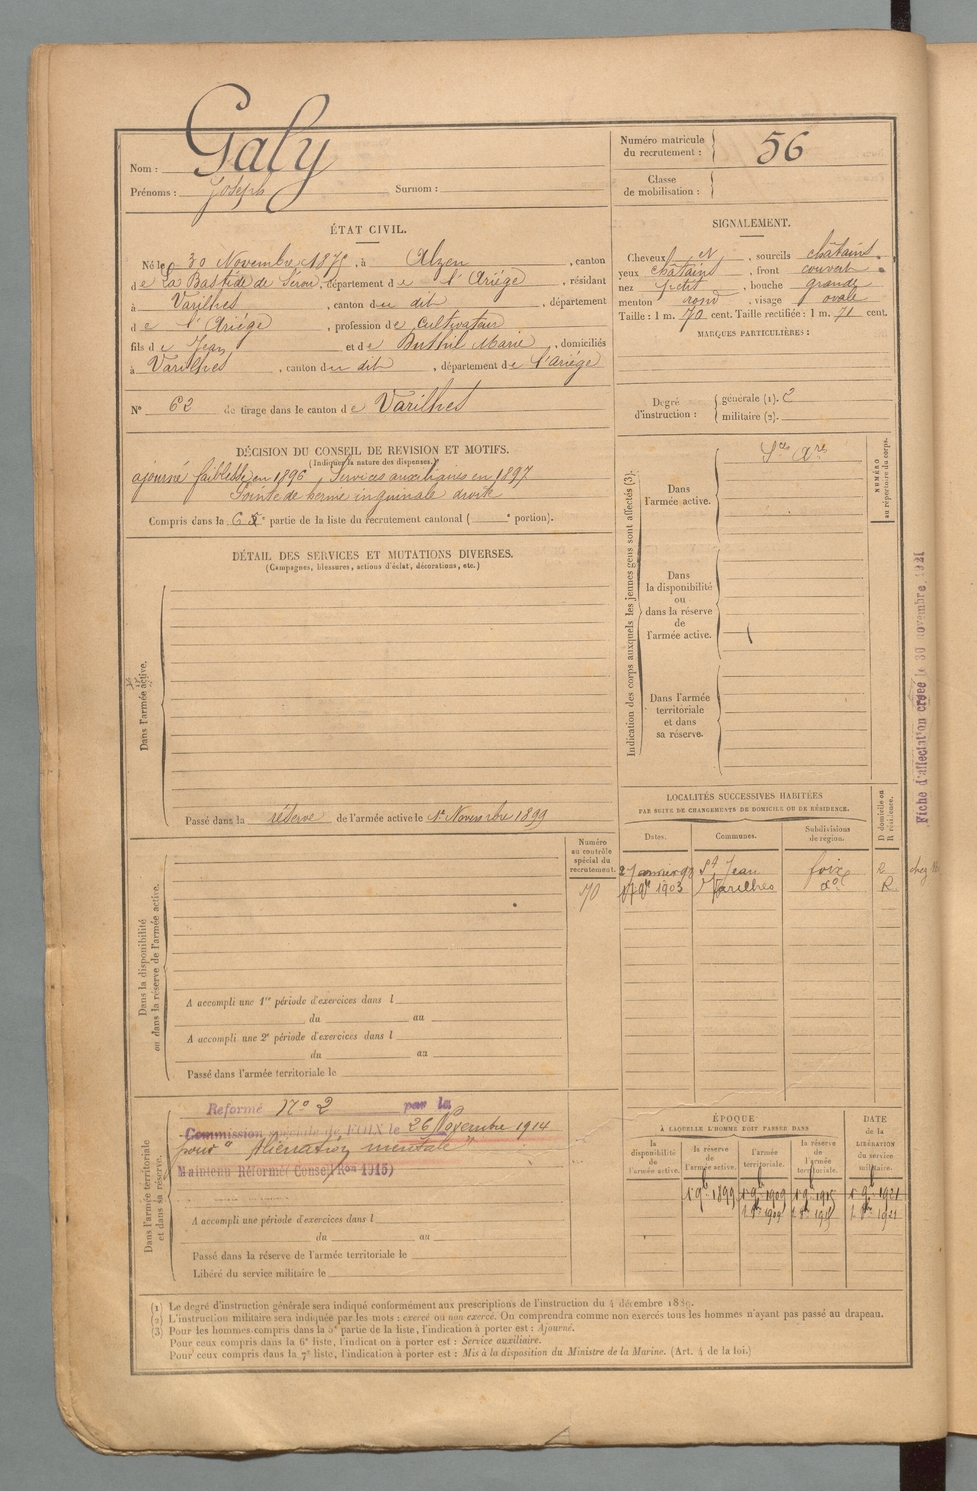 Nom : Galy
Prénoms : Joseph Surnom :
Numéro matricule du recrutement : 56
Classe de mobilisation :
ÉTAT CIVIL.
Né le 30 Novembre 1875, à Alzen, canton
de La Bastide de Sérou, département de l'Ariége, résidant
à Varilhes, canton du dit, département
de l'Ariége, profession de Cultivateur
fils de Jean et de Marie, domiciliés
à Varilhes, canton du dit, département de l'Ariége
N° 62 de tirage dans le canton de Varilhes
SIGNALEMENT.
Cheveux et, sourcils châtains
yeux châtains, front couvert
nez petit, bouche grande
menton rond, visage ovale
Taille : 1 m. 70 cent. Taille rectifiée : 1 m. 71 cent.
MARQUES PARTICULIÈRES :
Degré d'instruction : générale (1). 2
militaire (2).
DÉCISION DU CONSEIL DE REVISION ET MOTIFS.
(Indiquer la nature des dispenses.)
ajourné faiblesse en 1896, Services auxiliaires en 1897
Pointe de hernie inguinale droite
Compris dans la 6e partie de la liste du recrutement cantonal ( e portion).
DÉTAIL DES SERVICES ET MUTATIONS DIVERSES.
(Campagnes, blessures, actions d'éclat, décorations, etc.)
Dans l'armée active.
Passé dans la réserve de l'armée active le 1er Novembre 1899
Indication des corps auxquels les jeunes gens sont affectés (3).
Dans l'armée active.
Sces Ares
NUMÉRO au répertoire du corps.
Dans la disponibilité ou dans la réserve de l'armée active.
Dans l'armée territoriale et dans sa réserve.
Fiche d'affectation créée le 30 novembre 1921
LOCALITÉS SUCCESSIVES HABITÉES
PAR SUITE DE CHANGEMENTS DE DOMICILE OU DE RÉSIDENCE.
Dates. Communes. Subdivisions de région. D domicile ou R résidence.
St Jean foix R
1903 Varilhes do R
chez
Numéro au contrôle spécial du recrutement.
70
Dans la disponibilité ou dans la réserve de l'armée active.
A accompli une 1re période d'exercices dans l
du au
A accompli une 2e période d'exercices dans l
du au
Passé dans l'armée territoriale le
Dans l'armée territoriale et dans sa réserve.
Réformé N° 2 par la
Commission spéciale de FOIX le 26 Novembre 1914
pour "Aliénation mentale"
Maintenu Réformé (Conseil Ron 1915)
A accompli une période d'exercices dans l
du au
Passé dans la réserve de l'armée territoriale le
Libéré du service militaire le
ÉPOQUE
A LAQUELLE L'HOMME DOIT PASSER DANS
la disponibilité de l'armée active. la réserve de l'armée active. l'armée territoriale. la réserve de l'armée territoriale. DATE de la LIBÉRATION du service militaire.
1er 9bre 1899 1er 9bre 1909 1er 9bre 1915 1er 9bre 1921
(1) Le degré d'instruction générale sera indiqué conformément aux prescriptions de l'instruction du 4 décembre 1889.
(2) L'instruction militaire sera indiquée par les mots : exercé ou non exercé. On comprendra comme non exercés tous les hommes n'ayant pas passé au drapeau.
(3) Pour les hommes compris dans la 5e partie de la liste, l'indication à porter est : Ajourné.
Pour ceux compris dans la 6e liste, l'indication à porter est : Service auxiliaire.
Pour ceux compris dans la 7e liste, l'indication à porter est : Mis à la disposition du Ministre de la Marine. (Art. 4 de la loi.)